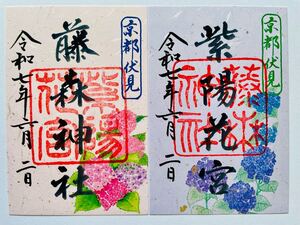 京都伏見
紫陽花宮
令和七年六月二日
藤森
神社
京都伏見
藤森神社
令和七年六月二日
紫陽
花宮